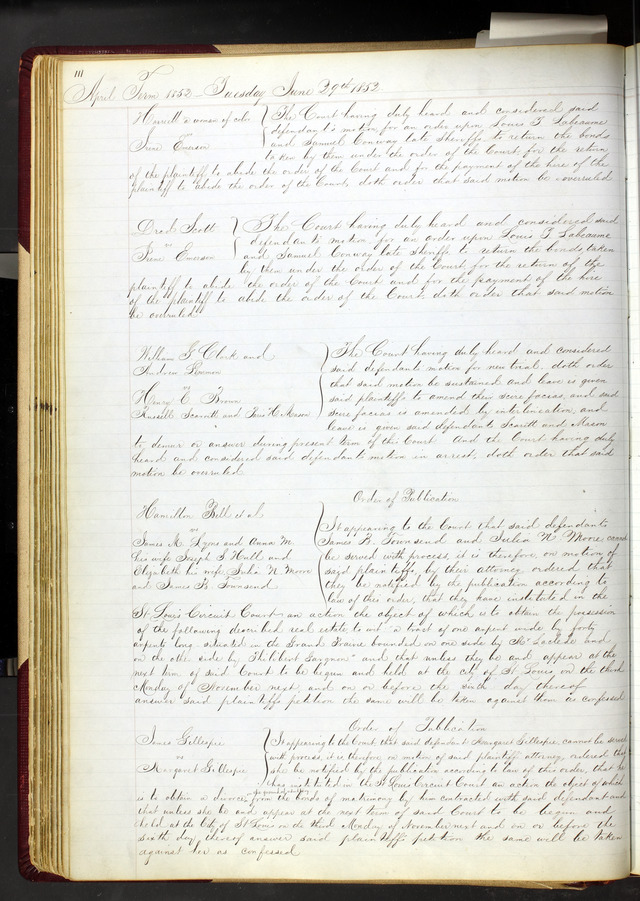 111
April Term 1852 Tuesday June 29th 1852
Harriet a woman of color
vs
Irene Emerson
The Court having duly heard and considered said
defendant's motion for an order upon Louis T Labeaume
and Samuel Conway late sheriffs to return the bonds
taken by them under the order of the Court, for the return
of the plaintiff to abide the order of the Court and for the payment of the hire of the
plaintiff to abide the order of the Court, doth order that said motion be overruled
Dred Scott
vs
Irene Emerson
The Court having duly heard and considered said
defendants motion for an order upon Louis T Labeaume
and Samuel Conway late sheriffs to return the bonds, taken
by them under the order of the Court, for the return of the
plaintiff to abide the order of the Court and for the payment of the hire
of the plaintiff to abide the order of the Court, doth order that said motion
be overruled
William G Clark and
Andrew
vs
Henry C Brown
Russell Scarritt and H Mason
The Court having duly heard and considered
said defendants motion for new trial, doth order
that said motion be sustained and leave is given
said plaintiffs to amend their scire facias, and said
scire facias is amended by interlineation, and
leave is given said defendants Scarritt and Mason
to demur or answer during present term of this Court And the Court having duly
heard and considered said defendants motion in arrest, doth order that said
motion be overruled
Order of Publication
Hamilton Bell et al.
vs
James M. and Anna M
his wife Joseph S Hull and
Elizabeth his wife, Julia N Moore
and James B Townsend
It appearing to the Court that said defendants
James B. Townsend and Julia N Moore, cannot
be served with process, it is therefore, on motion of
said plaintiffs by their attorney ordered that
they be notified by the publication according to
law of this order, that they have instituted in the
St Louis Circuit Court an action the object of which is to obtain the possession
of the following described real estate to wit "a tract of one arpent wide by forty
arpents long situated in the Grand Prairie bounded on one side by and
on the other side by Philibert " and that unless they be and appear at the
next term of said Court to be begun and held at the city of St Louis, on the third
Monday of November next, and on or before the sixth day thereof
answer said plaintiffs petition the same will be taken against them as confessed
Order of Publication
James Gillespie
vs
Margaret Gillespie
It appearing to the Court that said defendant Margaret Gillespie, cannot be served
with process, it is therefore on motion of said plaintiffs attorney, ordered that
she be notified by the publication according to law of this order, that he
has instituted in the St Louis Circuit Court an action the object of which
is to obtain a divorce from the bonds of matrimony by him contracted with said defendant and
that unless she be and appear at the next term of said Court to be begun and
held at the City of St Louis on the third Monday of November next and on or before the
sixth day thereof answer said plaintiffs petition the same will be taken
against her as confessed